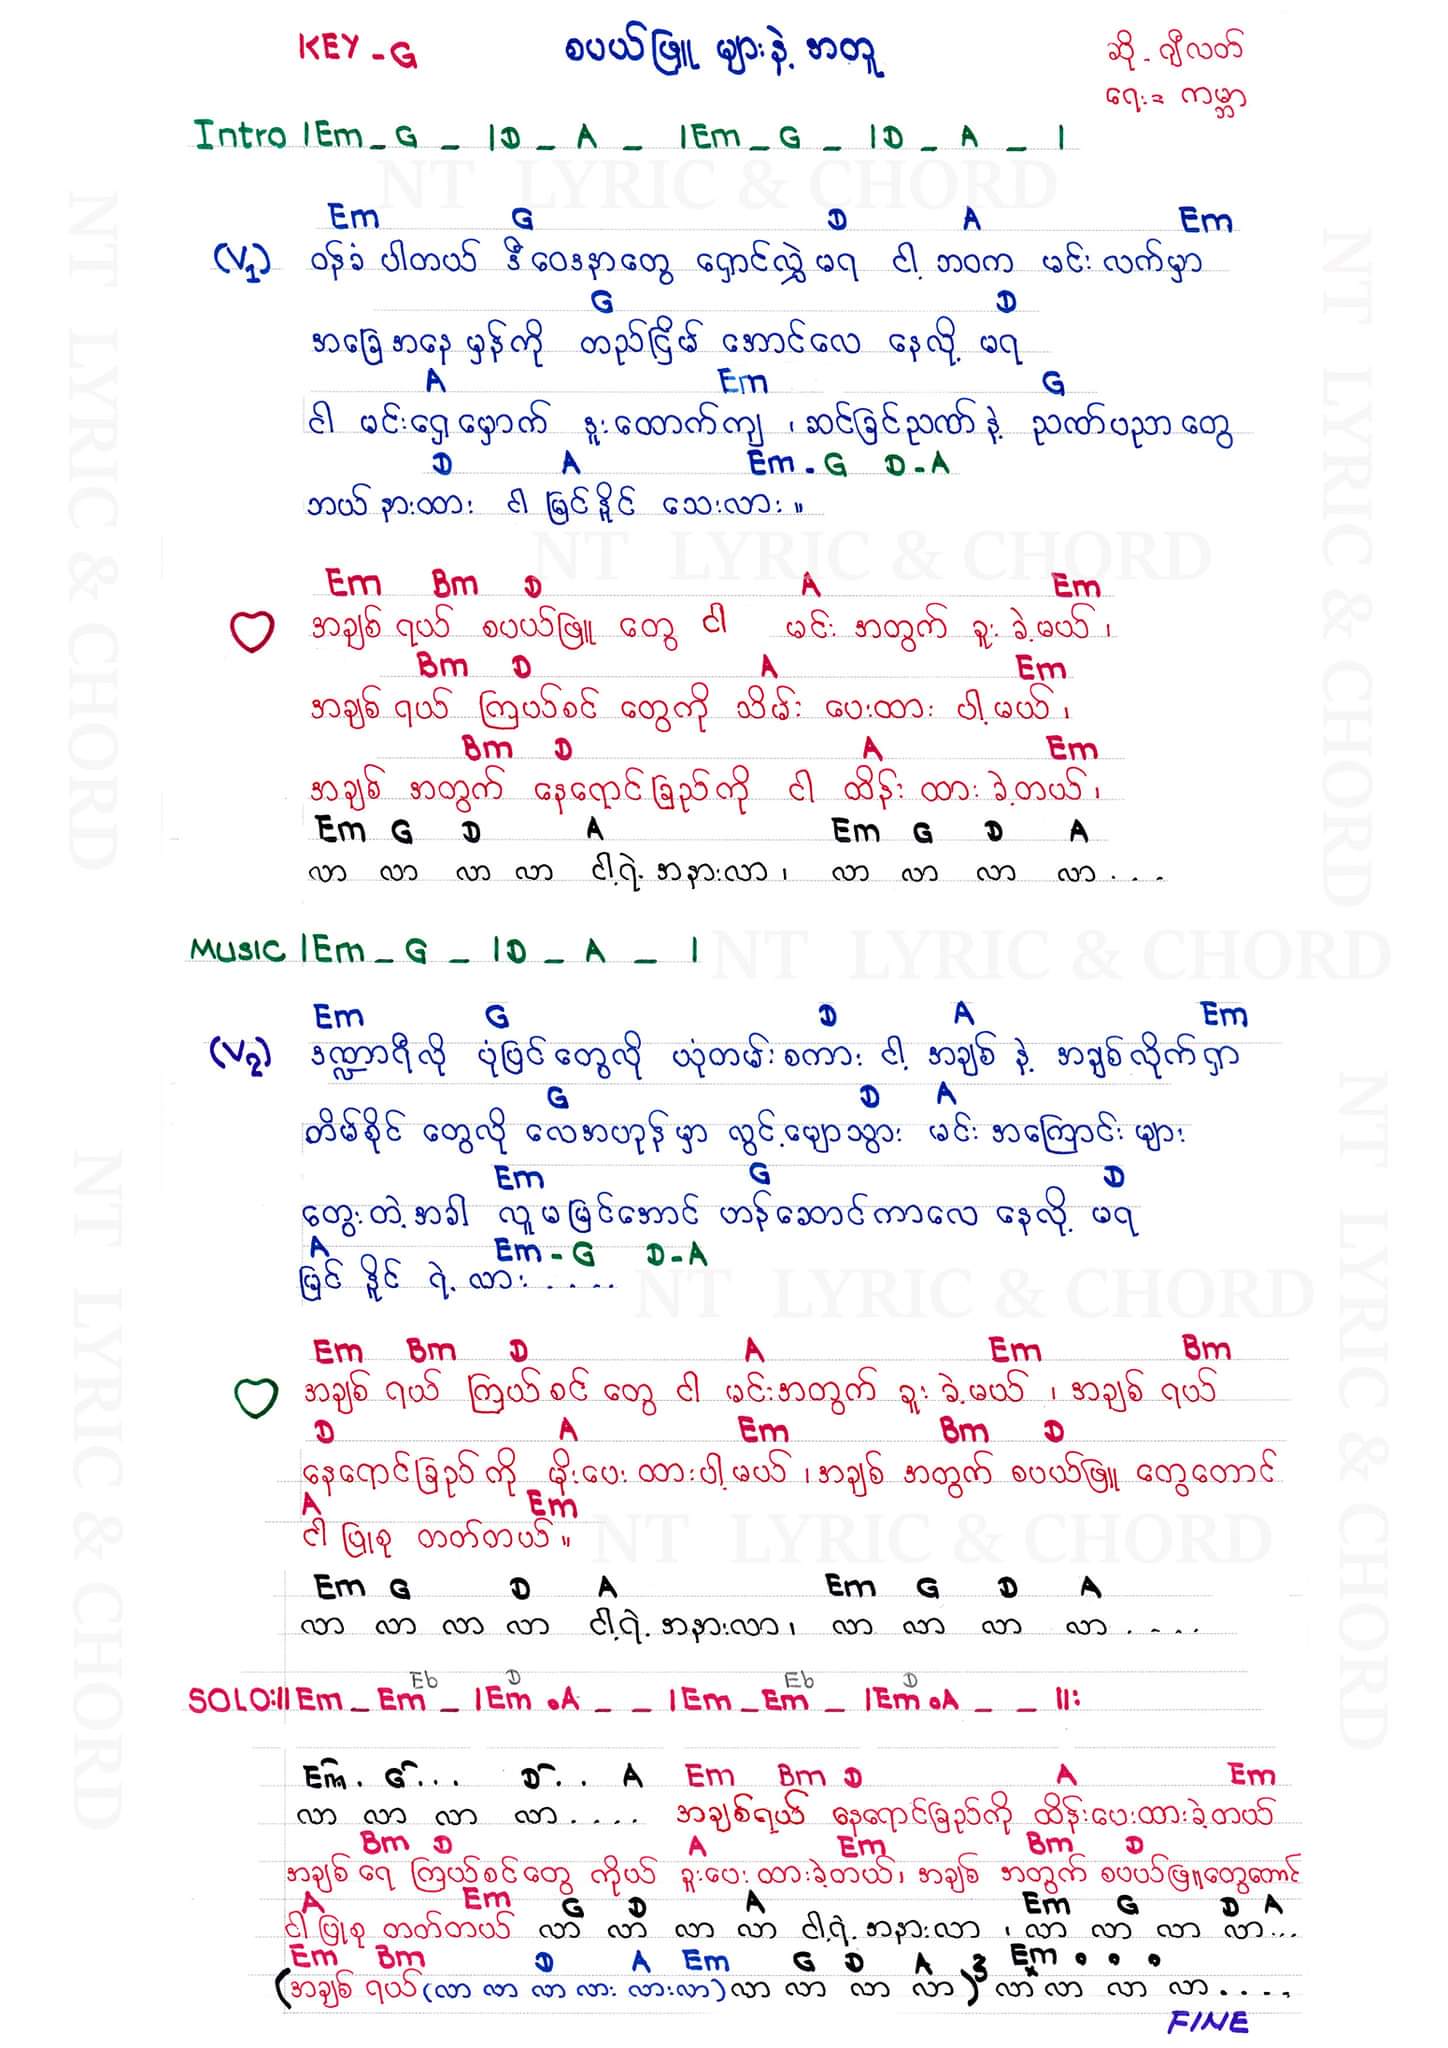 KEY - G
စပယ်ဖြူ များနဲ့ အတူ
ဆို - ဂျီလတ်
ရေး = ကမ္ဘာ
Intro |Em _ G _ |D _ A _ |Em _ G _ |D _ A _ |
Em G D A Em
(V1) ဝန်ခံ ပါတယ် ဒီဝေဒနာတွေ ရှောင်လွှဲမရ ငါ့ ဘဝက မင်းလက်မှာ
G D
အခြေအနေ မှန်ကို တည်ငြိမ် အောင်လေ နေလို့ မရ
A Em G
ငါ မင်းရှေ့မှောက် ဒူးထောက်ကျ ၊ ဆင်ခြင်ဉာဏ်နဲ့ ဉာဏ်ပညာတွေ
D A Em - G D - A
ဘယ်နားထား ငါ မြင်နိုင် သေးလား ။
Em Bm D A Em
♡ အချစ် ရယ် စပယ်ဖြူ တွေ ငါ မင်း အတွက် ခူး ခဲ့မယ် ၊
Bm D A Em
အချစ် ရယ် ကြယ်စင် တွေကို သိမ်း ပေးထား ပါ့မယ် ၊
Bm D A Em
အချစ် အတွက် နေရောင်ခြည်ကို ငါ ထိန်း ထား ခဲ့တယ် ၊
Em G D A Em G D A
လာ လာ လာ လာ ငါ့ရဲ့ အနားလာ ၊ လာ လာ လာ လာ . . . .
MUSIC |Em _ G _ |D _ A _ |
Em G D A Em
(V2) ဒဏ္ဍာရီလို ပုံပြင်တွေလို ယုံတမ်းစကား ငါ့ အချစ် နဲ့ အချစ်လိုက်ရှာ
G D A
တိမ်စိုင် တွေလို လေအဟုန်မှာ လွင့်မျောသွား မင်း အကြောင်းများ
Em G D
တွေးတဲ့အခါ လူမမြင်အောင် ဟန်ဆောင်ကာလေ နေလို့ မရ
A Em - G D - A
မြင် နိုင် ရဲ့ လား . . . . .
Em Bm D A Em Bm
♡ အချစ် ရယ် ကြယ်စင်တွေ ငါ မင်းအတွက် ခူး ခဲ့မယ် ၊ အချစ် ရယ်
D A Em Bm D
နေရောင်ခြည်ကို မိုးပေးထားပါ့မယ် ၊ အချစ် အတွက် စပယ်ဖြူ တွေတောင်
A Em
ငါ ပြုစု တတ်တယ် ။
Em G D A Em G D A
လာ လာ လာ လာ ငါ့ရဲ့ အနားလာ ၊ လာ လာ လာ လာ . . . . .
Eb D Eb D
SOLO:||Em _ Em _ |Em . A _ _ |Em _ Em _ |Em . A _ _ ||:
Em . G . . . D . . . A Em Bm D A Em
လာ လာ လာ လာ . . . . . အချစ်ရယ် နေရောင်ခြည်ကို ထိန်းပေးထားခဲ့တယ်
Bm D A Em Bm D
အချစ် ရေ ကြယ်စင်တွေ ကိုယ် ခူးပေးထားခဲ့တယ် ၊ အချစ် အတွက် စပယ်ဖြူတွေတောင်
A Em G D A Em G D A
ငါ ပြုစု တတ်တယ် လာ လာ လာ လာ ငါ့ရဲ့ အနားလာ ၊ လာ လာ လာ လာ ...
Em Bm D A Em G D A Em . . .
(အချစ် ရယ် (လာ လာ လာ လား လားလာ) လာ လာ လာ လာ )3 လာ လာ လာ လာ . . . . .
FINE
NT LYRIC & CHORD
NT LYRIC & CHORD
NT LYRIC & CHORD
NT LYRIC & CHORD
NT LYRIC & CHORD
NT LYRIC & CHORD
NT LYRIC & CHORD
NT LYRIC & CHORD
NT LYRIC & CHORD